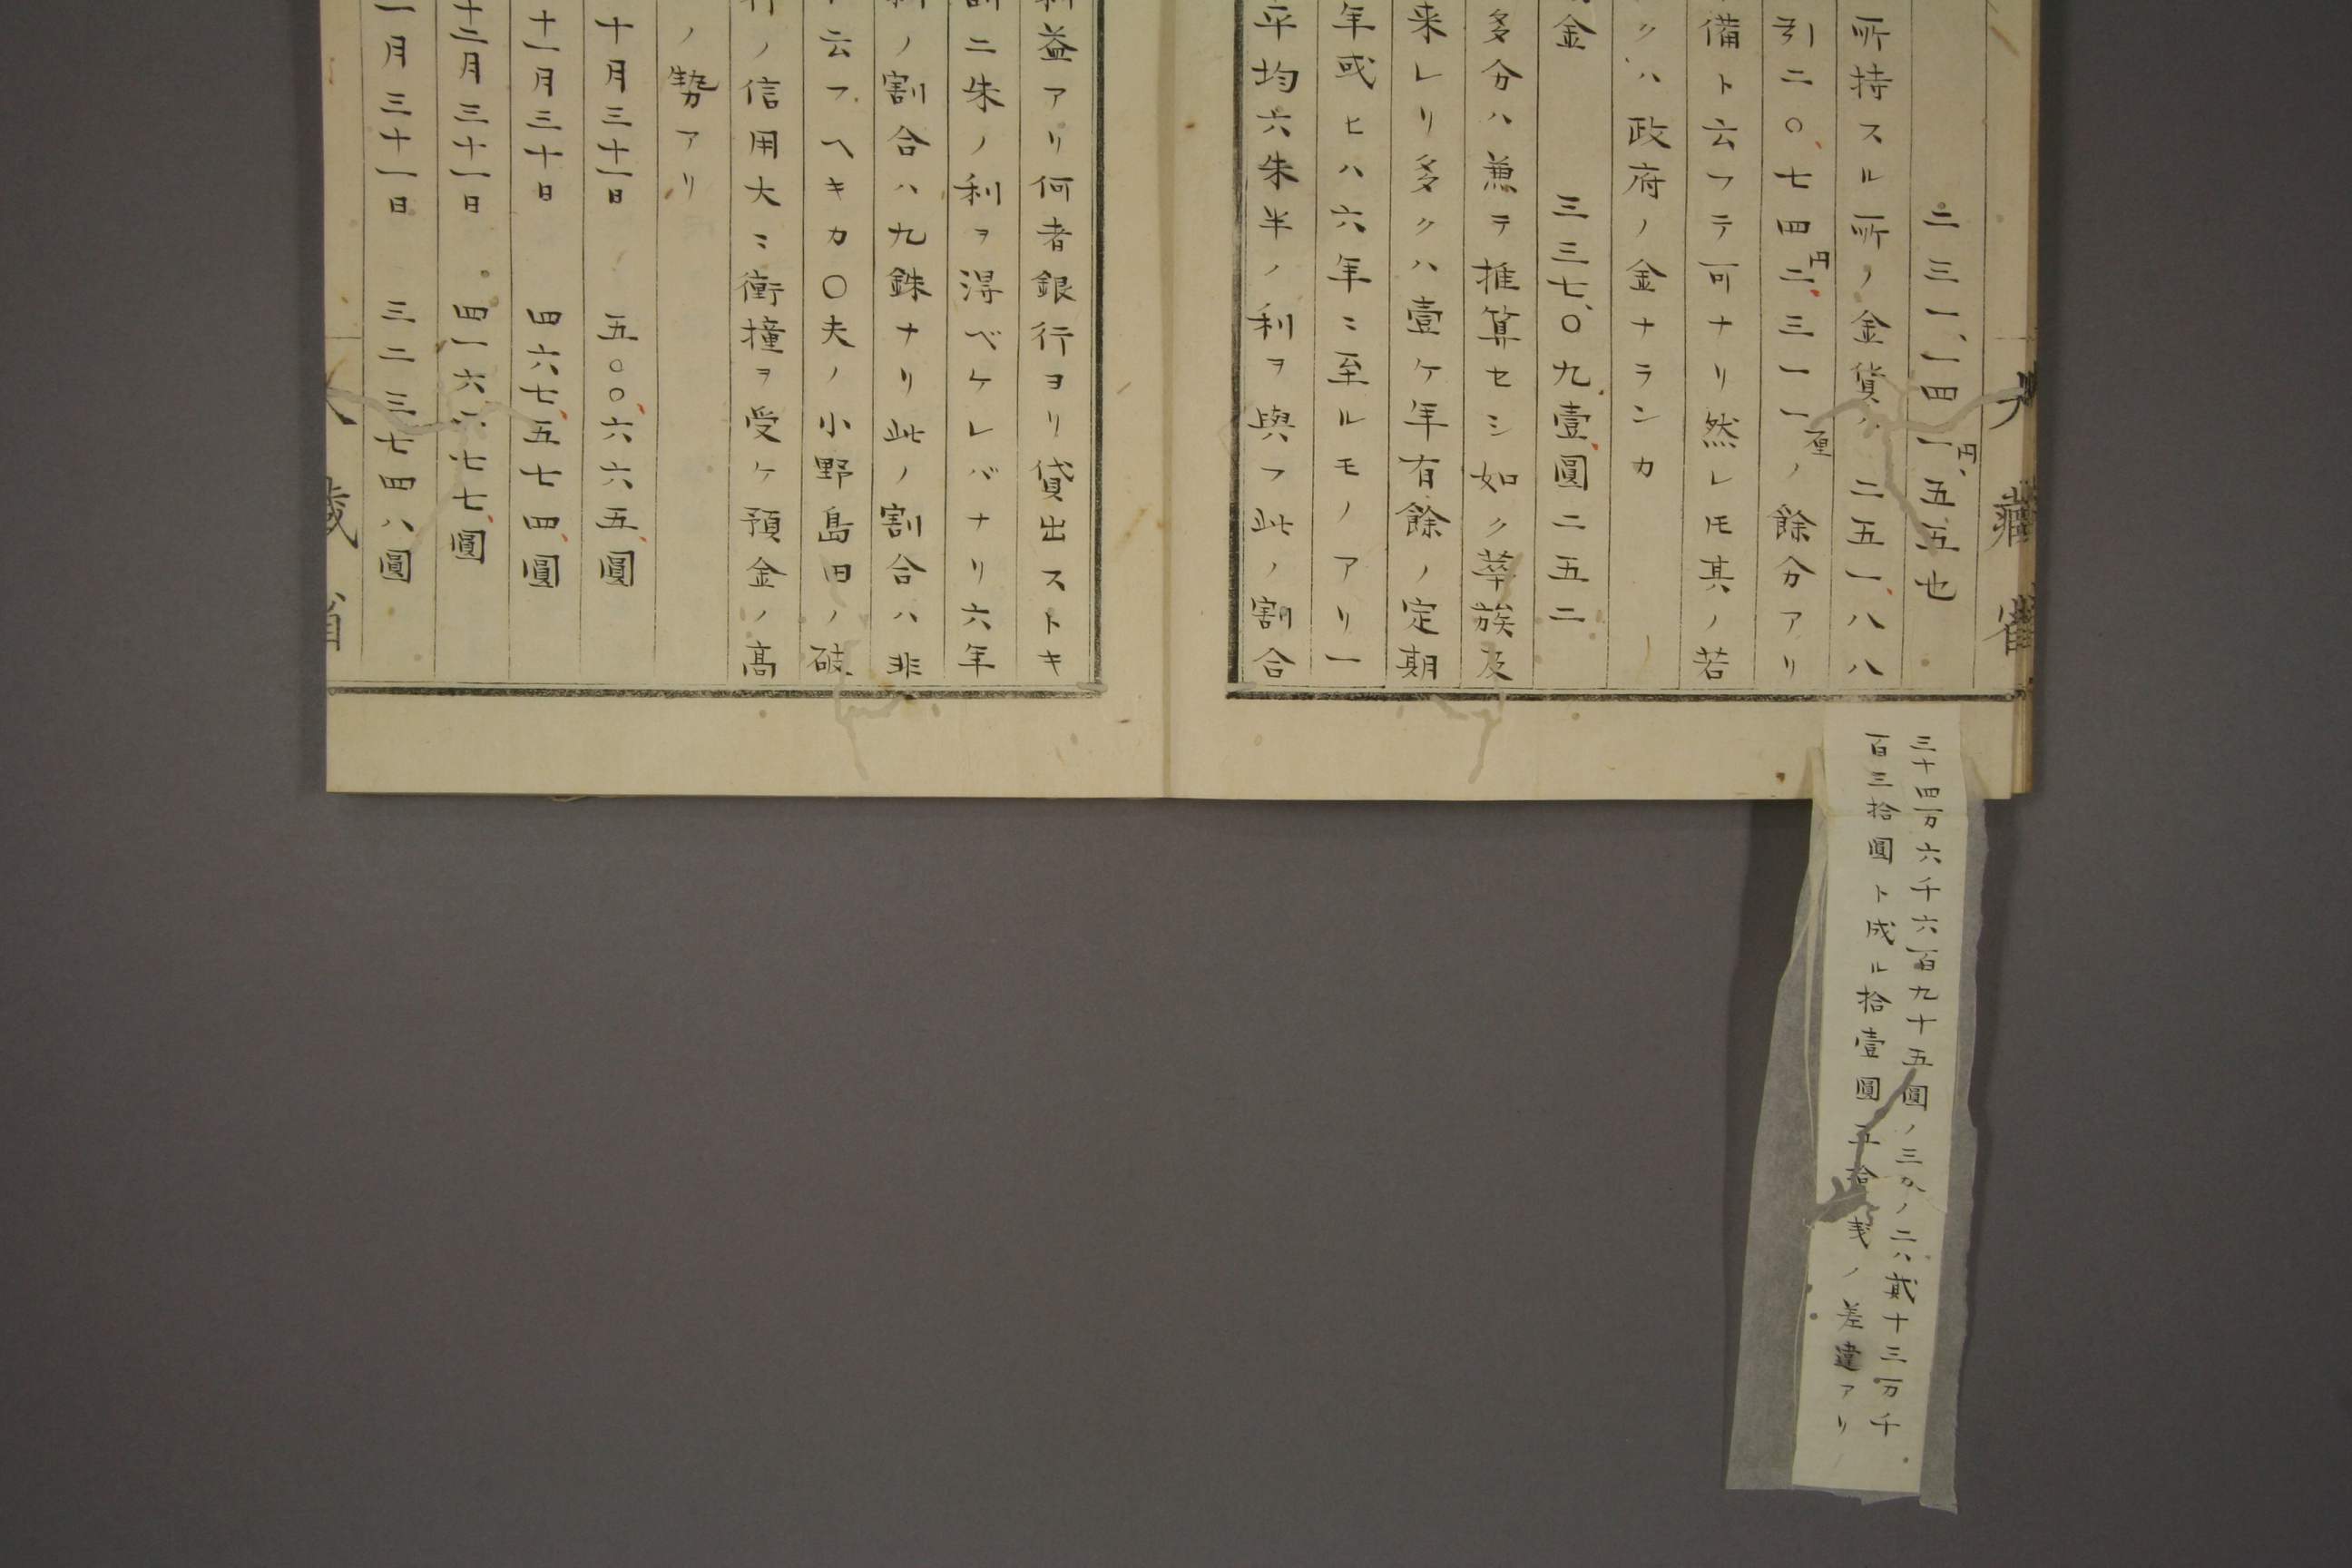 二三一、一四一円、五五也
所持スル所ノ金貨ハ二五一、八八
引二〇、七四二円、三一一厘ノ余分アリ
備ト云フテ可ナリ然レ𪜈其ノ若
クハ政府ノ金ナランカ
金　三三七、〇九壹、圓二五二
多分ハ兼ヲ推算セシ如ク華族及
来レリ多クハ壹ケ年有餘ノ定期
年或ヒハ六年ニ至ルモノアリ一
平均六朱半ノ利ヲ與フ此ノ割合
利益アリ何者銀行ヨリ貸出ストキ
割二朱ノ利ヲ得ベケレバナリ六年
利ノ割合ハ九銖ナリ此ノ割合ハ非
ト云フヘキカ〇夫ノ小野島田ノ破
行ノ信用大ニ衝撞ヲ受ケ預金ノ高
ノ勢アリ
十月三十一日　五〇〇、六六五、圓
十一月三十日　四六七、五七四、圓
十二月三十一日　四一六、六七七、圓
一月三十一日　三二三七四八圓
大藏省
三十四万六千六百九十五圓ノ三分ノ二ハ貳十三万千
百三拾圓ト成ル拾壹圓五拾銭ノ差違アリ